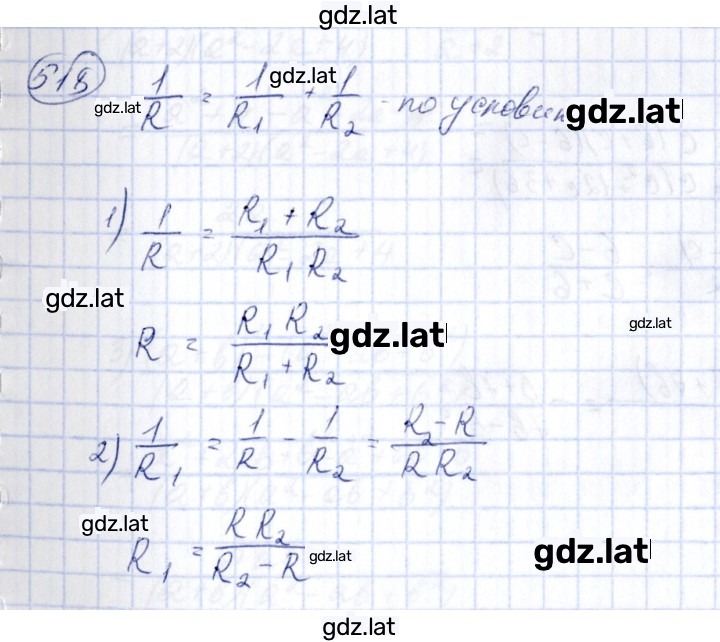 gdz.lat
518 1/R = 1/R₁ + 1/R₂ - по условию
gdz.lat
gdz.lat
gdz.lat
1) 1/R = (R₁ + R₂)/(R₁ R₂)
gdz.lat
R = (R₁ R₂)/(R₁ + R₂)
gdz.lat
gdz.lat
2) 1/R₁ = 1/R - 1/R₂ = (R₂ - R)/(R R₂)
gdz.lat
R₁ = (R R₂)/(R₂ - R)
gdz.lat
gdz.lat
gdz.lat